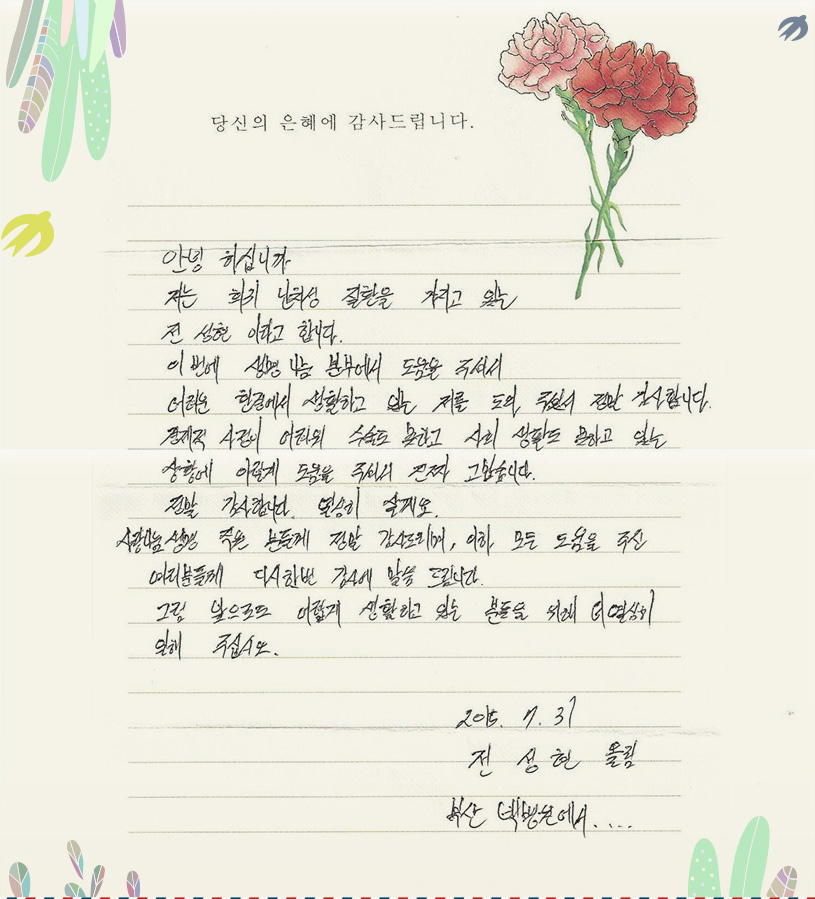 당신의 은혜에 감사드립니다.
안녕 하십니까
저는 희귀 난치성 질환을 가지고 있는
전 성현 이라고 합니다.
이번에 생명 나눔 본부에서 도움을 주셔서
어려운 환경에서 생활하고 있는 저를 도와 주셔서 정말 감사합니다.
경제적 사정이 어려워 수술도 못하고 사회 생활도 못하고 있는
상황에 이렇게 도움을 주셔서 진짜 고맙습니다.
정말 감사합니다. 열심히 살게요.
사랑나눔 생명 분들께 정말 감사드리며, 이하 모든 도움을 주신
여러분들께 다시한번 감사에 말씀 드립니다.
그럼 앞으로도 어렵게 생활하고 있는 분들을 위해 더 열심히
일해 주십시오.
2015. 7. 31
전 성 현 올림
부산 백병원에서....